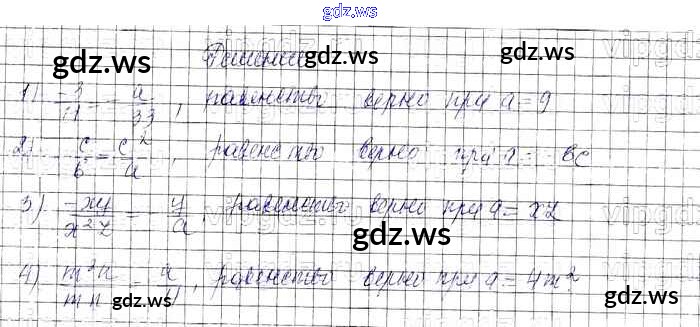 gdz.ws
Решение
1) -3/11 = -a/33, равенство верно при a = 9
2) -c/b = c²/a, равенство верно при a = -bc
3) -xy/x²z = -y/a, равенство верно при a = xz
4) m³n/mn = a/4, равенство верно при a = 4m²
gdz.ws